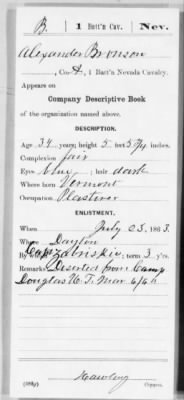 B. 1 Batt'n Cav. Nev.
Alexander Bronson
, Co. A, 1 Batt'n Nevada Cavalry.
Appears on
Company Descriptive Book
of the organization named above.
DESCRIPTION.
Age 34 years; height 5 feet 5¾ inches.
Complexion fair
Eyes blue; hair dark
Where born Vermont
Occupation Plasterer
ENLISTMENT.
When July 23, 1863.
Where Dayton
By whom Capt Zabriskie; term 3 y'rs.
Remarks Deserted from Camp
Douglas U. T. Mar 6/64
Hawling
Copyist.